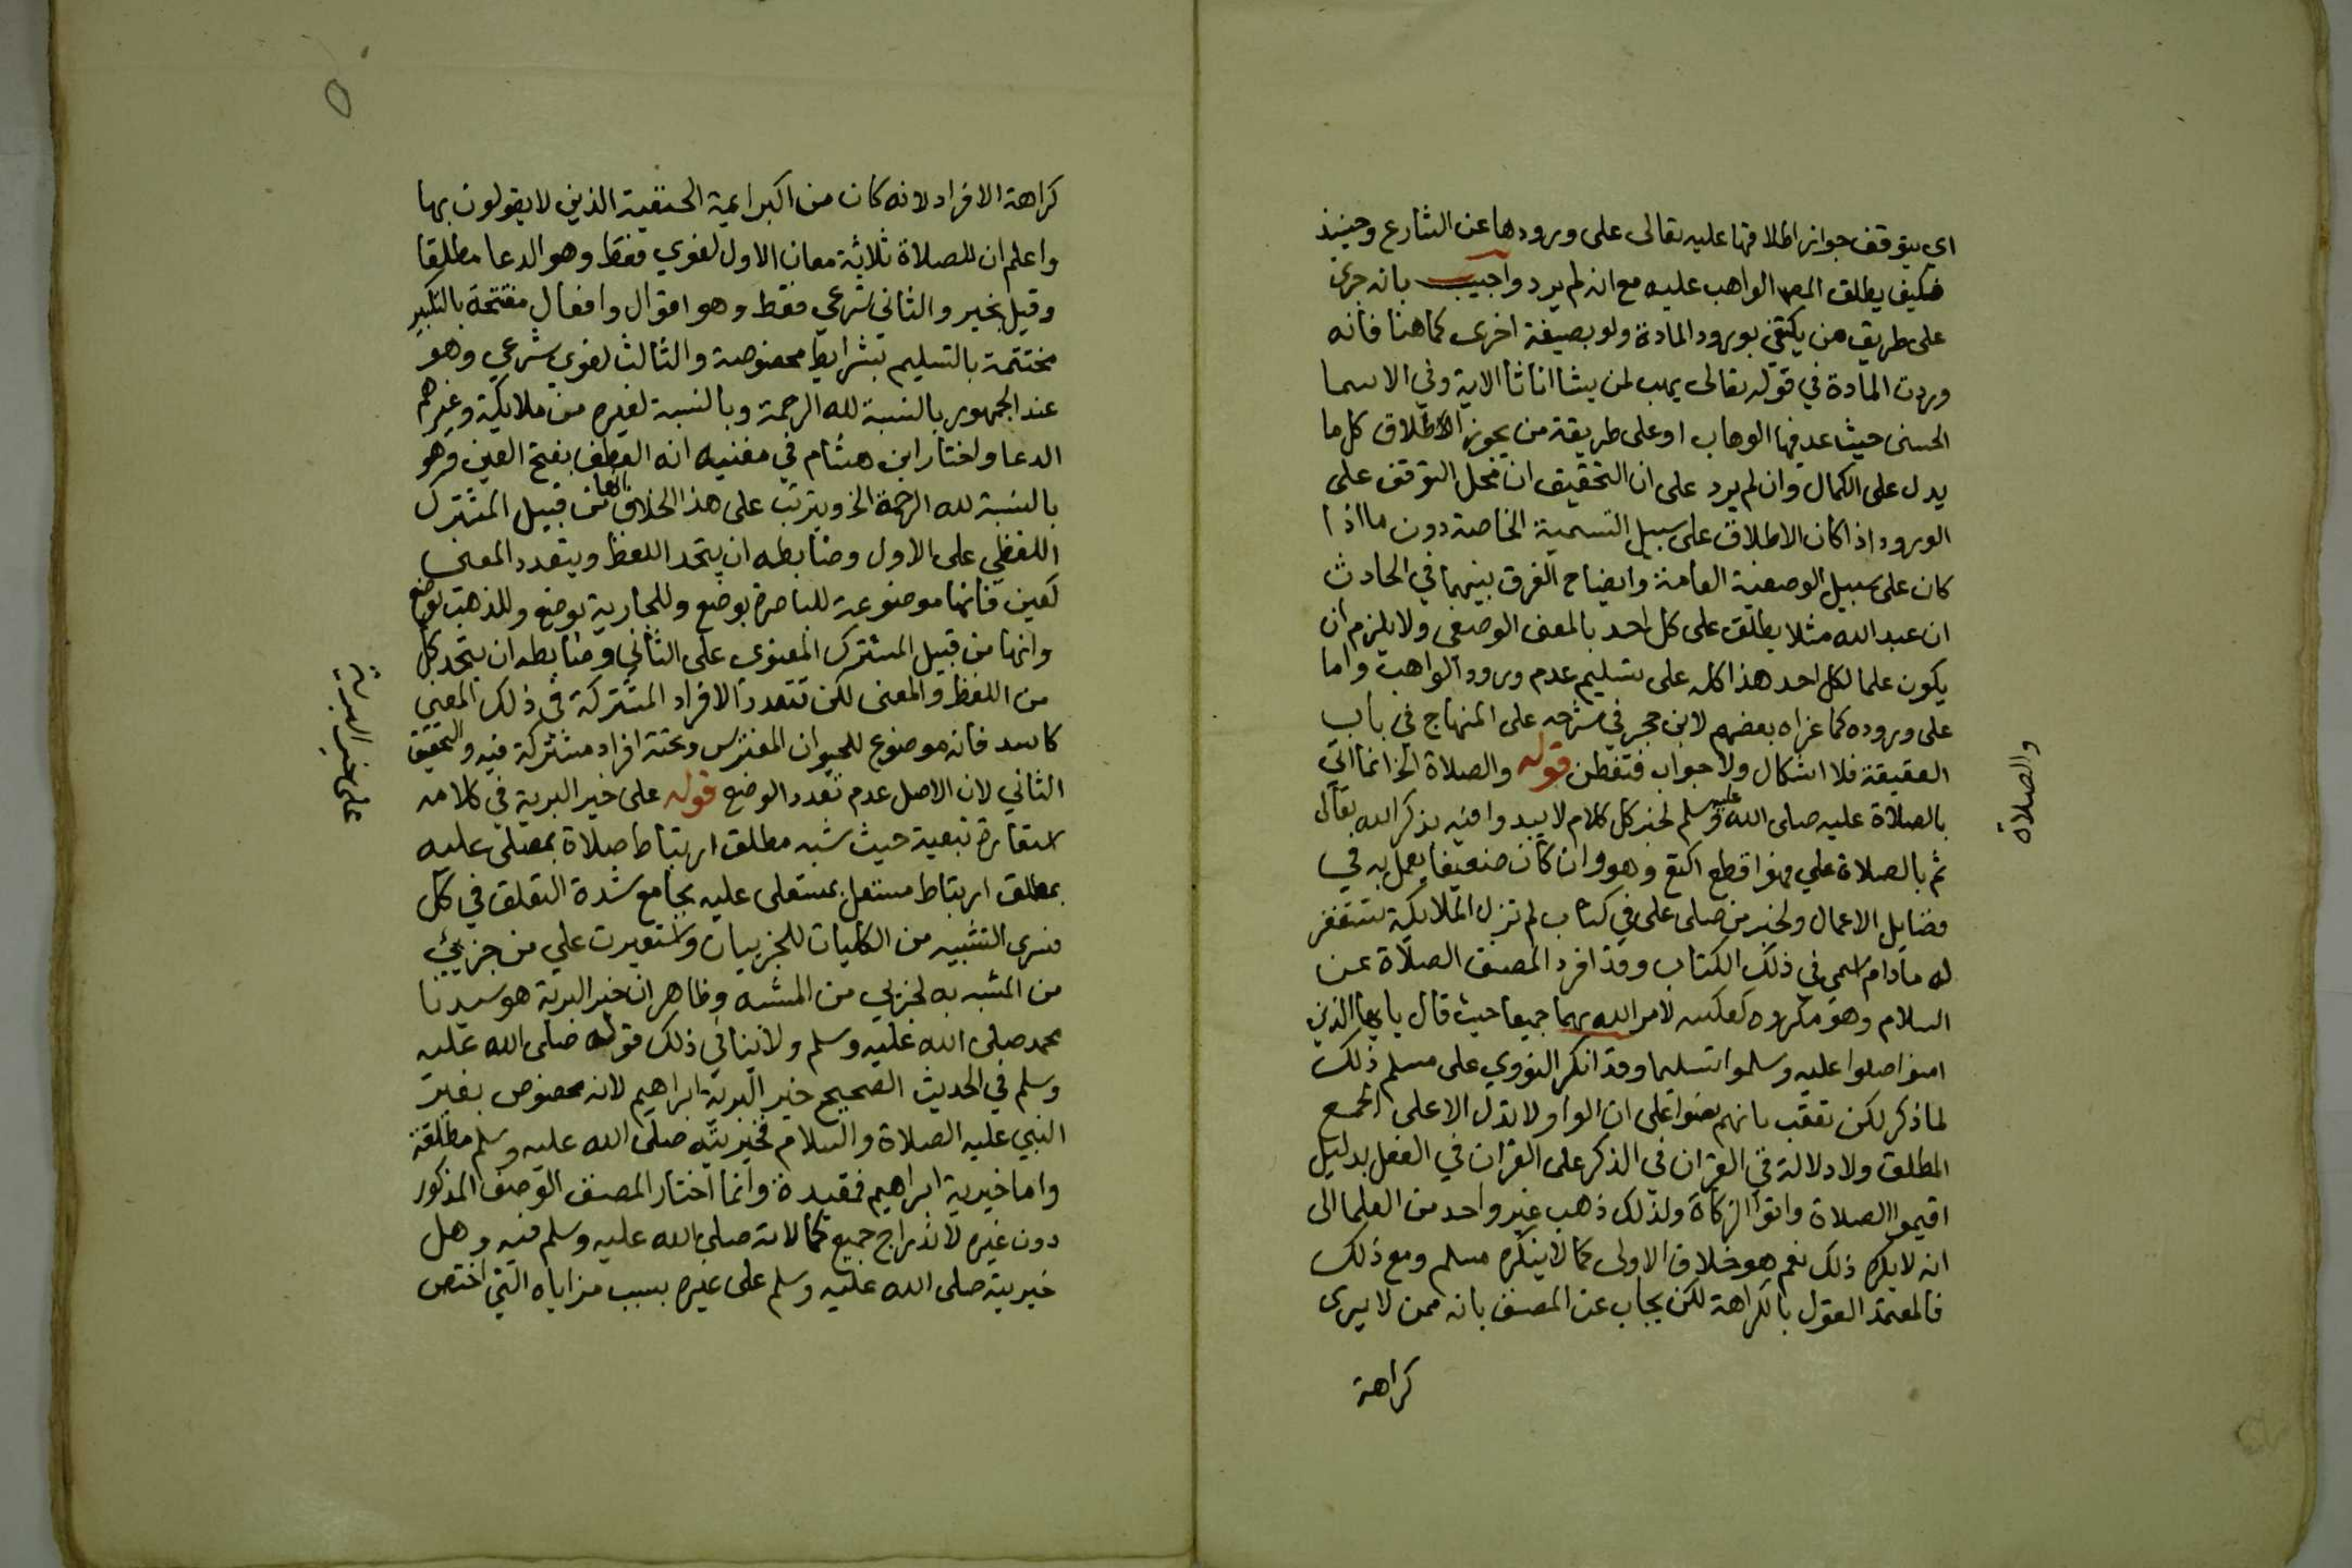 اي يتوقف جواز اطلاقها عليه تعالى على ورودها عن الشارع وحينيذ
فكيف يطلق المص الواهب عليه مع انه لم يرد واجيب بانه جرى
على طريق من يكتفي بورود المادة ولو بصيغة اخرى كما هنا فانه
وردت المادة في قوله تعالى يهب لمن يشا اناثا الاية وفي الاسما
الحسنى حيث عد فيها الوهاب او على طريقة من يجوز الاطلاق كل ما
يدل على الكمال وان لم يرد على ان التحقيق ان محل التوقف على
الورود اذا كان الاطلاق على سبيل التسمية الخاصة دون ما اذا
كان على سبيل الوصفية العامة وايضاح الفرق بينهما في الحادث
ان عبد الله مثلا يطلق على كل احد بالمعنى الوصفي ولا يلزم ان
يكون علما لكل احد هذا كله على تسليم عدم ورود الواهب واما
على وروده كما عزاه بعضهم لابن حجر في شرحه على المنهاج في باب
العقيقة فلا اشكال ولا جواب فتفطن قوله والصلاة الخ انما اتى
بالصلاة عليه صلى الله عليه وسلم لخبر كل كلام لا يبدوا فيه بذكر الله تعالى
ثم بالصلاة علي فهو اقطع اكتع وهو وان كان ضعيفا يعمل به في
فضايل الاعمال ولخبر من صلى علي في كتاب لم تزل الملايكة تستغفر
له مادام اسمي في ذلك الكتاب وقد افرد المصنف الصلاة عن
السلام وهو مكروه كعكسه لامر الله بهما جميعا حيث قال يا يها الذين
امنوا صلوا عليه وسلموا تسليما وقد انكر النووي على مسلم ذلك
لما ذكر لكن تعقب بانهم نصوا على ان الواو لا تدل الا على الجمع
المطلق ولا دلالة في القران في الذكر على القران في الفعل بدليل
اقيموا الصلاة واتوا الزكاة ولذلك ذهب غير واحد من العلما الى
انه لا يكره ذلك نعم هو خلاف الاولى كما لا ينكره مسلم ومع ذلك
فالمعتمد القول بالكراهة لكن يجاب عن المصنف بانه ممن لا يرى
كراهة
والصلاة
كراهة الافراد لانه كان من اكبر ايمة الحنفية الذين لا يقولون بها
واعلم ان للصلاة ثلاثة معان الاول لغوي فقط وهو الدعا مطلقا
وقيل بخير والثاني شرعي فقط وهو اقوال وافعال مفتتحة بالتكبير
مختتمة بالتسليم بشرايط مخصوصة والثالث لغوي شرعي وهو
عند الجمهور بالنسبة لله الرحمة وبالنسبة لغيره من ملايكة وغيرهم
الدعا واختار ابن هشام في مغنيه انه العطف بفتح العين وهو
بالنسبة لله الرحمة الخ ويترتب على هذا الخلاف انها من قبيل المشترك
اللفظي على الاول وضابطه ان يتحد اللفظ ويتعدد المعنى
كعين فانها موضوعة للباصرة بوضع وللجارية بوضع وللذهب بوضع
وانها من قبيل المشترك المعنوي على الثاني وضابطه ان يتحد كل
من اللفظ والمعنى لكن تتعدد الافراد المشتركة في ذلك المعنى
كاسد فانه موضوع للحيوان المفترس وتحته افراد مشتركة فيه والتحقيق
الثاني لان الاصل عدم تعدد الوضع قوله على خير البرية في كلامه
استعارة تبعية حيث شبه مطلق ارتباط صلاة بمصلى عليه
بمطلق ارتباط مستعل بمستعلى عليه بجامع شدة التعلق في كل
فسرى التشبيه من الكليات للجزييات واستعيرت علي من جزيئ
من المشبه به لجزيي من المشبه وظاهر ان خير البرية هو سيدنا
محمد صلى الله عليه وسلم ولا ينافي ذلك قوله صلى الله عليه
وسلم في الحديث الصحيح خير البرية ابراهيم لانه مخصوص بغير
النبي عليه الصلاة والسلام فخيريته صلى الله عليه وسلم مطلقة
واما خيرية ابراهيم فمقيدة وانما اختار المصنف الوصف المذكور
دون غيره لاندراج جميع كمالاته صلى الله عليه وسلم فيه وهل
خيريته صلى الله عليه وسلم على غيره بسبب مزاياه التي اختص
على خير البرية